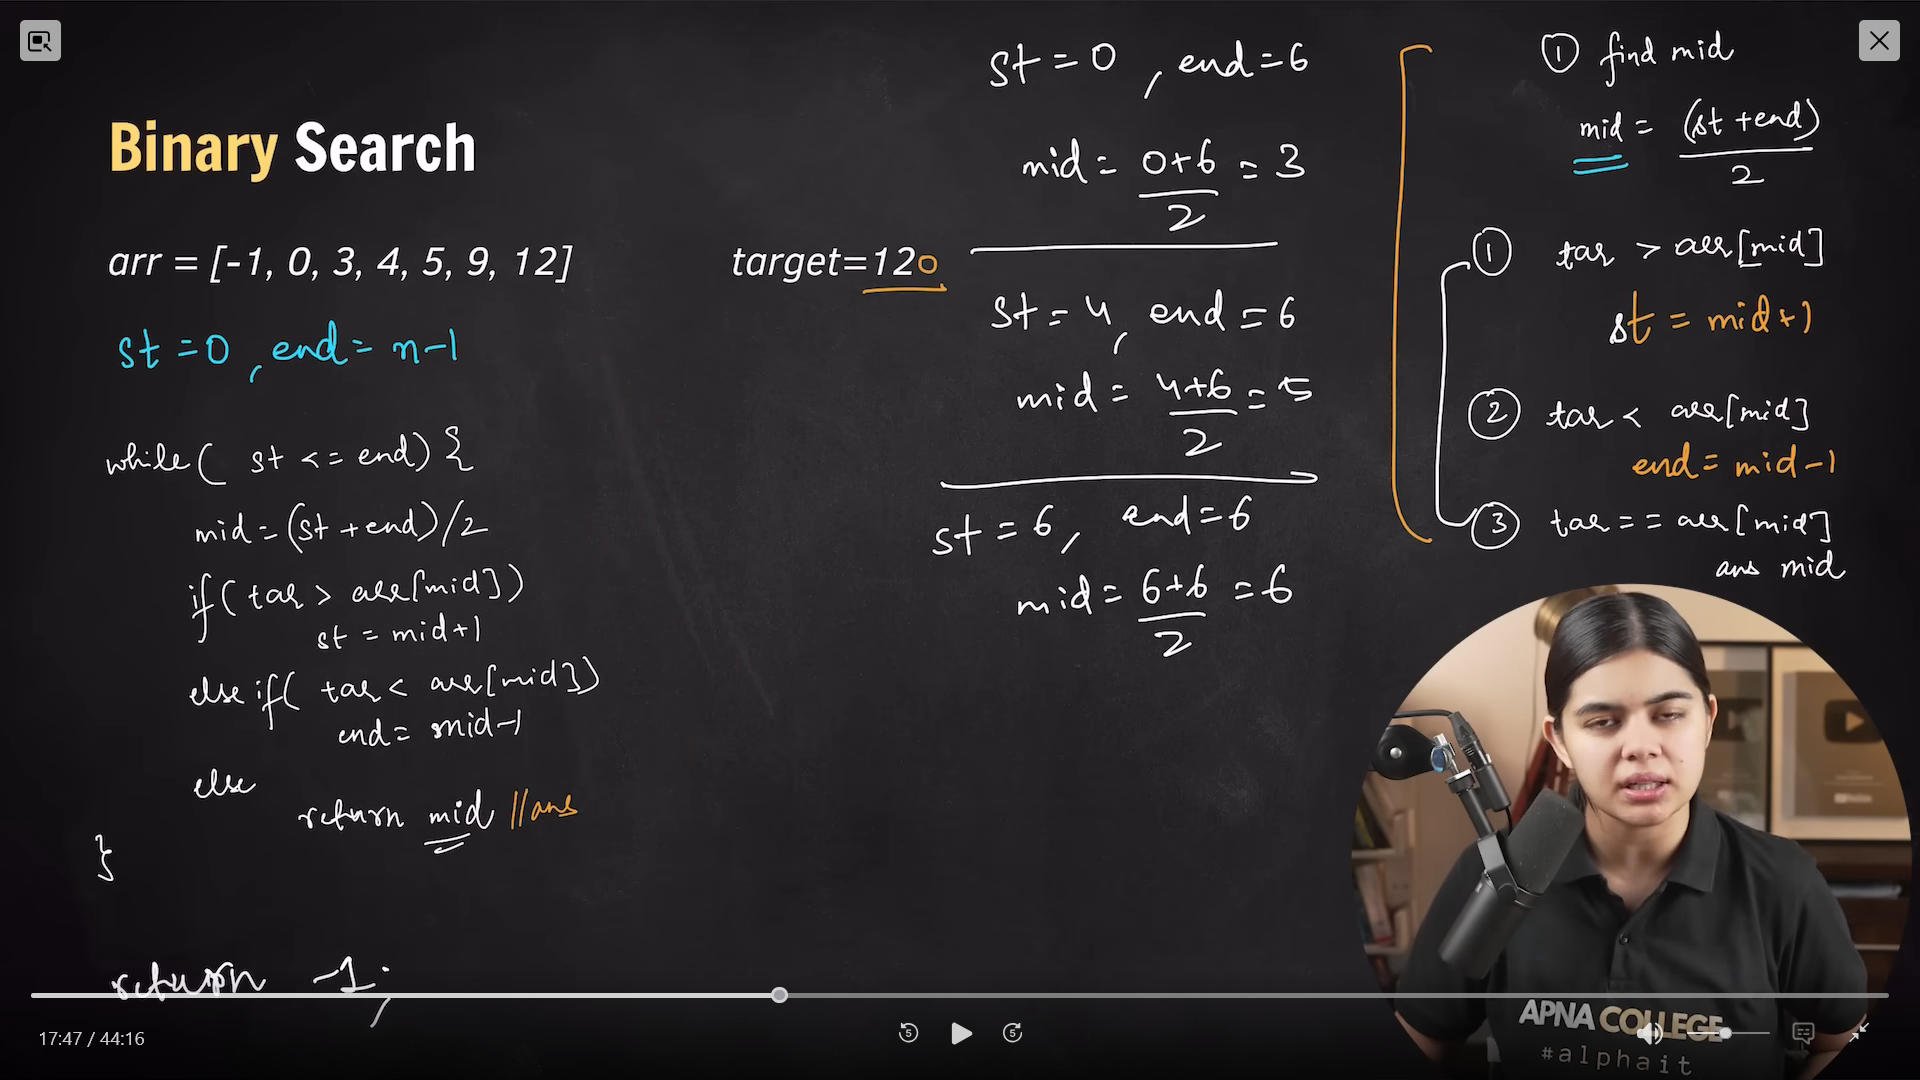 Binary Search
arr = [-1, 0, 3, 4, 5, 9, 12]
target=120
st = 0, end = n-1
while( st <= end) {
mid = (st + end)/2
if( tar > arr[mid])
st = mid+1
else if( tar < arr[mid])
end = mid-1
else
return mid //ans
}
return -1;
st = 0, end = 6
mid = 0+6/2 = 3
st = 4, end = 6
mid = 4+6/2 = 5
st = 6, end = 6
mid = 6+6/2 = 6
① find mid
mid = (st + end)/2
① tar > arr[mid]
st = mid+1
② tar < arr[mid]
end = mid-1
③ tar == arr[mid]
ans mid
APNA COLLEGE
#alphait
5
5
17:47 / 44:16